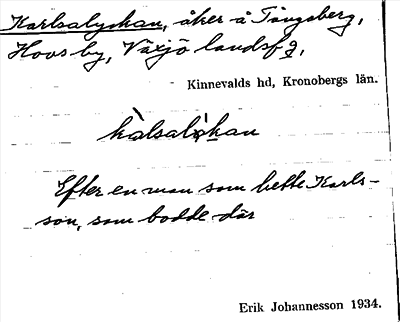 Karlsalyckan, åker å Tångsberg,
Hovs by, Växjö landsf g,
Kinnevalds hd, Kronobergs län.
Efter en man som hette Karls-
son, som bodde där
Erik Johannesson 1934.